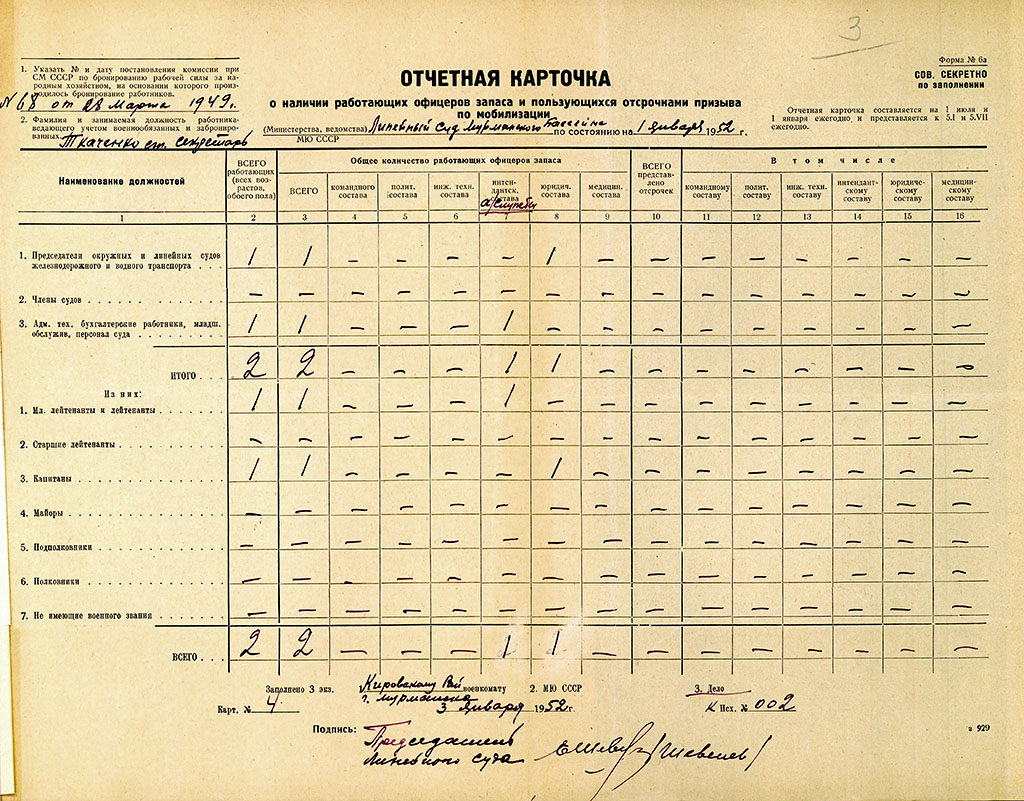 3
1. Указать № и дату постановления комиссии при
СМ СССР по бронированию рабочей силы за на-
родным хозяйством, на основании которого произ-
водилось бронирование работников.
N 68 от 28 марта 1949г.
2. Фамилия и занимаемая должность работника-
ведающего учетом военнообязанных и заброниро-
ванных
Ткаченко ст. секретарь
ОТЧЕТНАЯ КАРТОЧКА
о наличии работающих офицеров запаса и пользующихся отсрочками призыва
по мобилизации
(Министерства, ведомства) Линейный Суд Мурманского бассейна по состоянию на 1 января 1952 г.
МЮ СССР
Форма № 6а
СОВ. СЕКРЕТНО
по заполнении
Отчетная карточка составляется на 1 июля и
1 января ежегодно и представляется к 5.I и 5.VII
ежегодно.
Наименование должностей
ВСЕГО работающих (всех возрастов, обоего пола)
Общее количество работающих офицеров запаса
ВСЕГО представлено отсрочек
В том числе
ВСЕГО командного состава полит. состава инж. техн. состава интендантск. состава а/службы юридич. состава медицин. состава
командному составу полит. составу инж. техн. составу интендантскому составу юридическому составу медицинскому составу
1 2 3 4 5 6 7 8 9 10 11 12 13 14 15 16
1. Председатели окружных и линейных судов
железнодорожного и водного транспорта . . . 1 1 – – – – 1 – – – – – – – –
2. Члены судов . . . – – – – – – – – – – – – – – –
3. Адм. тех. бухгалтерские работники, младш.
обслужив, персонал суда . . . 1 1 – – – 1 – – – – – – – – –
ИТОГО . . . 2 2 – – – 1 1 – – – – – – – –
Из них:
1. Мл. лейтенанты и лейтенанты . . . 1 1 – – – 1 – – – – – – – – –
2. Старшие лейтенанты . . . – – – – – – – – – – – – – – –
3. Капитаны . . . 1 1 – – – – 1 – – – – – – – –
4. Майоры . . . – – – – – – – – – – – – – – –
5. Подполковники . . . – – – – – – – – – – – – – – –
6. Полковники . . . – – – – – – – – – – – – – – –
7. Не имеющие военного звания . . . – – – – – – – – – – – – – – –
ВСЕГО . . . 2 2 – – – 1 1 – – – – – – – –
Заполнено 3 экз. Кировскому Рай военкомату 2. МЮ СССР 3. Дело
г. Мурманска
Карт. № 4 3 января 1952 г. К Исх. № 002
Подпись: Председатель
Линейного суда
/Шевелев/
в 929